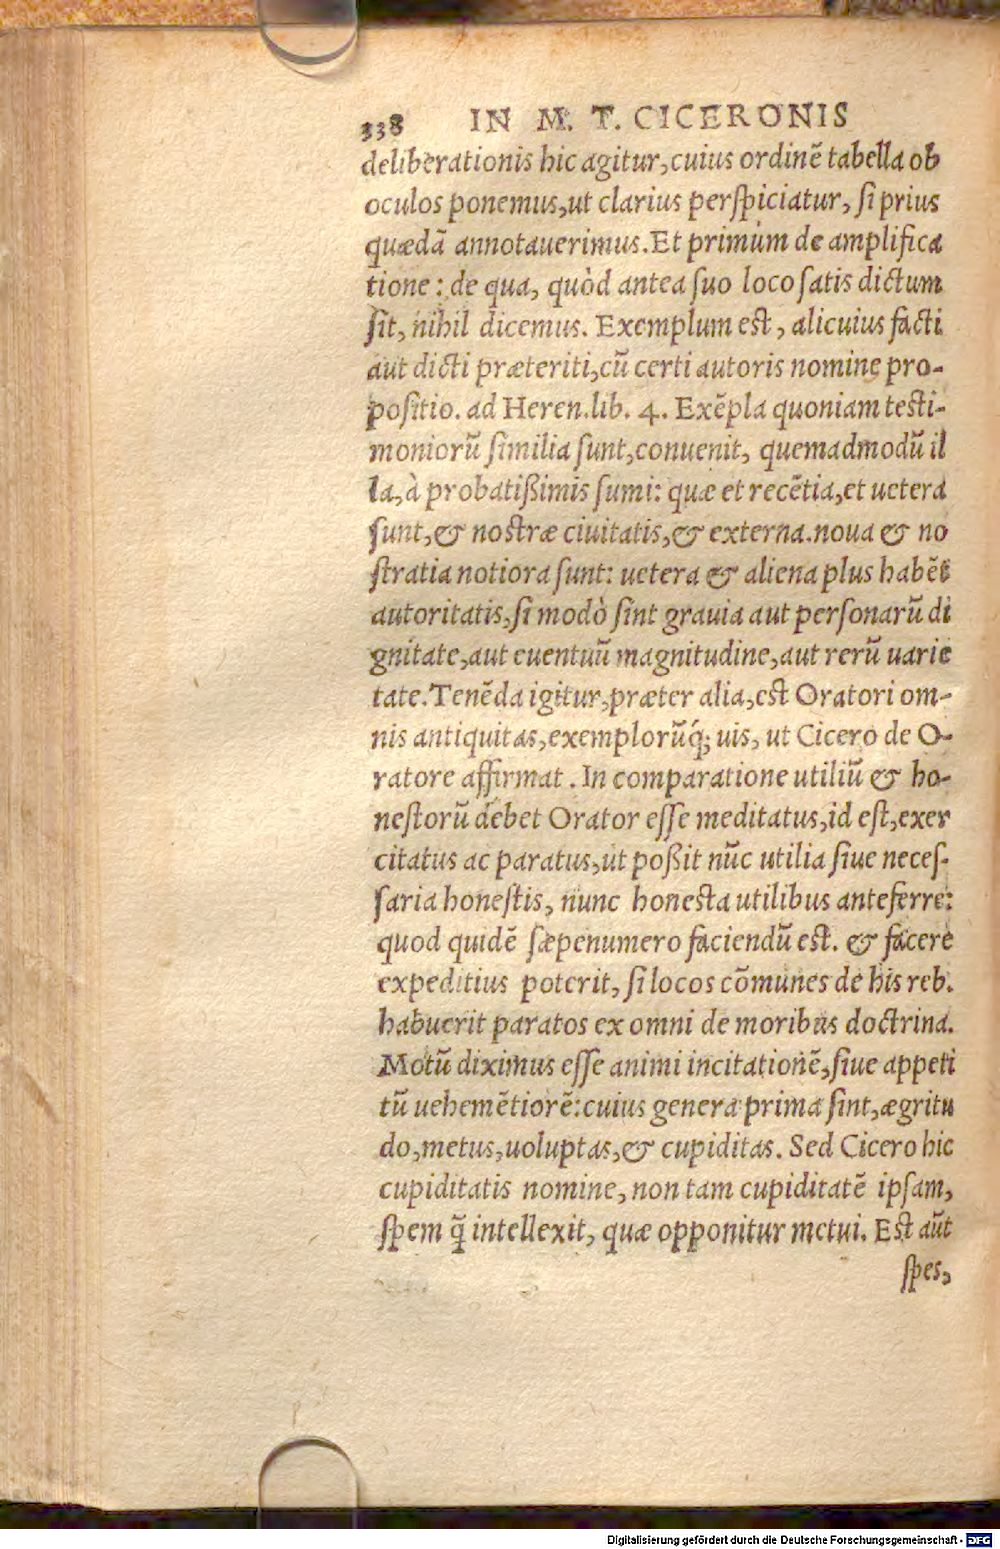 338 IN M. T. CICERONIS
deliberationis hic agitur, cuius ordinẽ tabella ob
oculos ponemus, ut clarius perspiciatur, si prius
quædã annotauerimus. Et primùm de amplifica
tione : de qua, quòd antea suo loco satis dictum
sit, nihil dicemus. Exemplum est, alicuius facti
aut dicti præteriti, cũ certi autoris nomine pro-
positio. ad Heren. lib. 4. Exẽpla quoniam testi-
moniorũ similia sunt, conuenit, quemadmodũ il
la, à probatißimis sumi: quæ et recẽtia, et uetera
sunt, & nostræ ciuitatis, & externa. noua & no
stratia notiora sunt: uetera & aliena plus habẽt
autoritatis, si modò sint grauia aut personarũ di
gnitate, aut euentuũ magnitudine, aut rerũ uarie
tate. Tenẽda igitur, præter alia, est Oratori om-
nis antiquitas, exemplorũq́; uis, ut Cicero de O-
ratore affirmat. In comparatione utiliũ & ho-
nestorũ debet Orator esse meditatus, id est, exer
citatus ac paratus, ut poßit nũc utilia siue neces-
saria honestis, nunc honesta utilibus anteferre:
quod quidẽ sæpenumero faciendũ est. & facere
expeditius poterit, si locos cõmunes de his reb.
habuerit paratos ex omni de moribus doctrina.
Motũ diximus esse animi incitationẽ, siue appeti
tũ uehemẽtiorẽ: cuius genera prima sint, ægritu
do, metus, uoluptas, & cupiditas. Sed Cicero hic
cupiditatis nomine, non tam cupiditatẽ ipsam,
spem q̃ intellexit, quæ opponitur metui. Est aũt
spes,
Digitalisierung gefördert durch die Deutsche Forschungsgemeinschaft - DFG